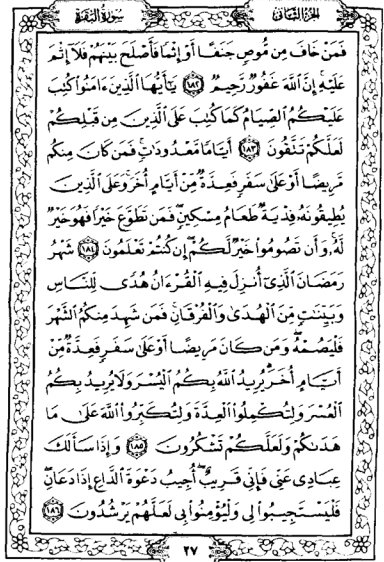 الجزء الثاني
سورة البقرة
فَمَنْ خَافَ مِن مُّوصٍ جَنَفًا أَوْ إِثْمًا فَأَصْلَحَ بَيْنَهُمْ فَلَآ إِثْمَ
عَلَيْهِ إِنَّ ٱللَّهَ غَفُورٌ رَّحِيمٌ ١٨٢ يَٰٓأَيُّهَا ٱلَّذِينَ ءَامَنُوا۟ كُتِبَ
عَلَيْكُمُ ٱلصِّيَامُ كَمَا كُتِبَ عَلَى ٱلَّذِينَ مِن قَبْلِكُمْ
لَعَلَّكُمْ تَتَّقُونَ ١٨٣ أَيَّامًا مَّعْدُودَٰتٍ فَمَن كَانَ مِنكُم
مَّرِيضًا أَوْ عَلَىٰ سَفَرٍ فَعِدَّةٌ مِّنْ أَيَّامٍ أُخَرَ وَعَلَى ٱلَّذِينَ
يُطِيقُونَهُۥ فِدْيَةٌ طَعَامُ مِسْكِينٍ فَمَن تَطَوَّعَ خَيْرًا فَهُوَ خَيْرٌ
لَّهُۥ وَأَن تَصُومُوا۟ خَيْرٌ لَّكُمْ إِن كُنتُمْ تَعْلَمُونَ ١٨٤ شَهْرُ
رَمَضَانَ ٱلَّذِىٓ أُنزِلَ فِيهِ ٱلْقُرْءَانُ هُدًى لِّلنَّاسِ
وَبَيِّنَٰتٍ مِّنَ ٱلْهُدَىٰ وَٱلْفُرْقَانِ فَمَن شَهِدَ مِنكُمُ ٱلشَّهْرَ
فَلْيَصُمْهُ وَمَن كَانَ مَرِيضًا أَوْ عَلَىٰ سَفَرٍ فَعِدَّةٌ مِّنْ
أَيَّامٍ أُخَرَ يُرِيدُ ٱللَّهُ بِكُمُ ٱلْيُسْرَ وَلَا يُرِيدُ بِكُمُ
ٱلْعُسْرَ وَلِتُكْمِلُوا۟ ٱلْعِدَّةَ وَلِتُكَبِّرُوا۟ ٱللَّهَ عَلَىٰ مَا
هَدَىٰكُمْ وَلَعَلَّكُمْ تَشْكُرُونَ ١٨٥ وَإِذَا سَأَلَكَ
عِبَادِى عَنِّى فَإِنِّى قَرِيبٌ أُجِيبُ دَعْوَةَ ٱلدَّاعِ إِذَا دَعَانِ
فَلْيَسْتَجِيبُوا۟ لِى وَلْيُؤْمِنُوا۟ بِى لَعَلَّهُمْ يَرْشُدُونَ ١٨٦
٢٧